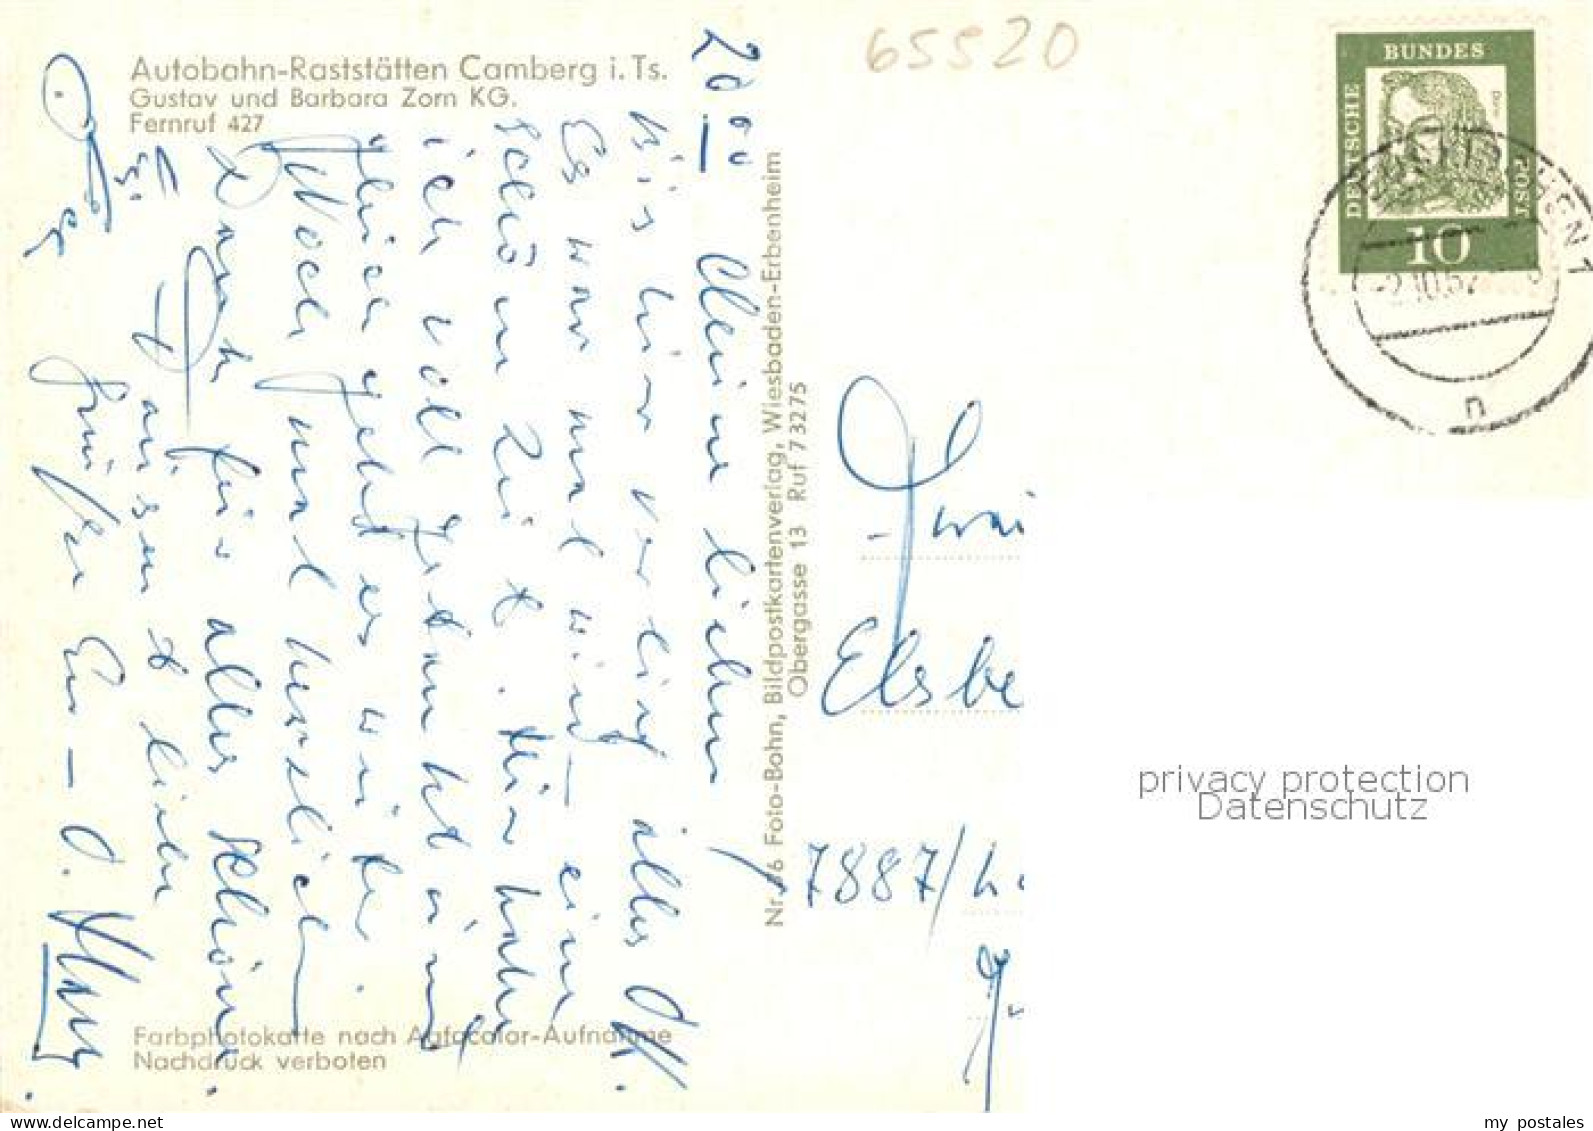 65520
Autobahn-Raststätten Camberg i. Ts.
Gustav und Barbara Zorn KG.
Fernruf 427
20 00
Meine Lieben,
bis hier verlief alles OK.
Es war mal wied- eine
schöne Zeit. Hier habe
ich voll getankt und
gleich geht es weiter.
Noch mal herzlichen
Dank für alles Schöne.
tausend liebe
Grüße Eu-
Nr. 76 Foto-Bohn, Bildpostkartenverlag, Wiesbaden-Erbenheim
Obergasse 13 Ruf 73275
Farbphotokarte nach Agfacolor-Aufnahme
Nachdruck verboten
DEUTSCHE BUNDESPOST
10
2.10.6
n
Elsbe
7887/
privacy protection
Datenschutz
www.delcampe.net
my_postales